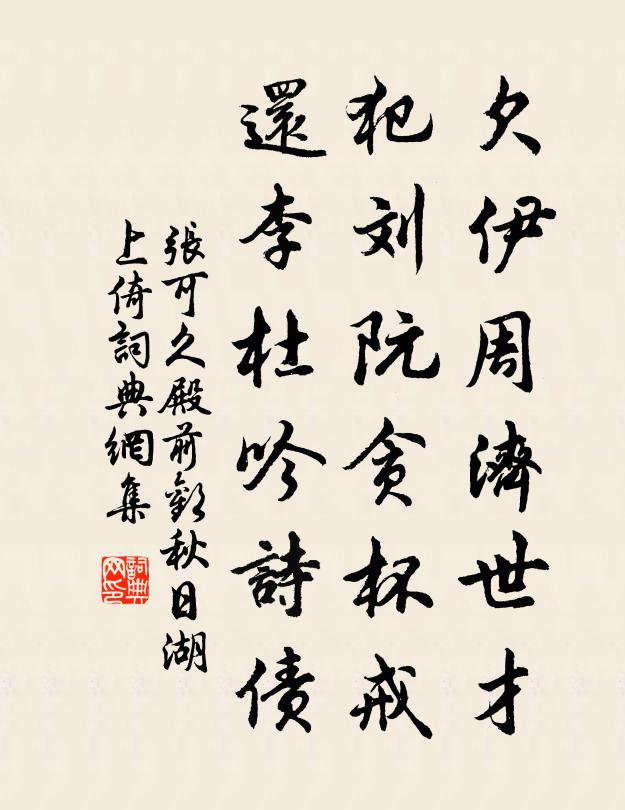 欠伊周濟世才
犯刘阮貪杯戒
還李杜吟詩債
張可久殿前歡秋日湖
上倚詞典網集
詞典
网印